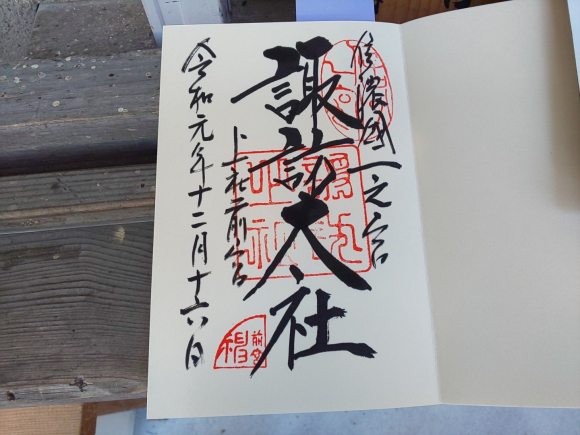 信濃國一之宮
諏訪大社
上社前宮
令和元年十二月十六日
前宮